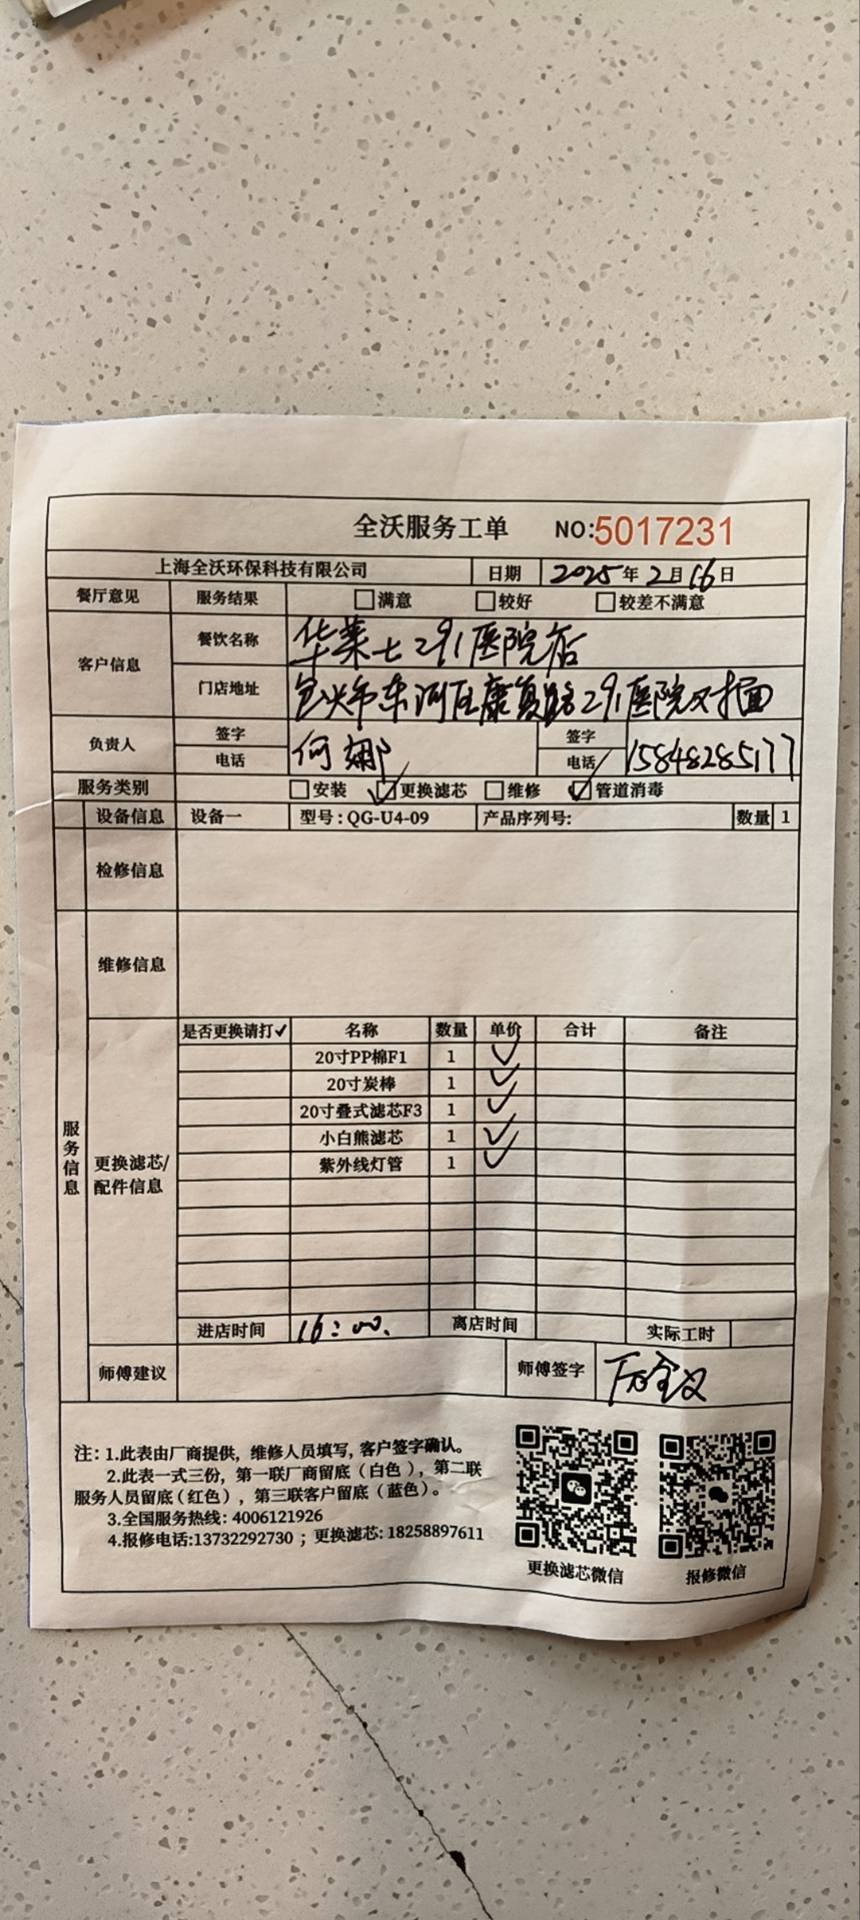 全沃服务工单 NO:5017231
上海全沃环保科技有限公司 日期 2025年2月16日
餐厅意见 服务结果 □满意 □较好 □较差不满意
客户信息 餐饮名称 华莱士291医院店
门店地址 包头市东河区康复路291医院对面
负责人 签字 电话 何娜 签字 电话 15848285177
服务类别 □安装 ☑更换滤芯 □维修 ☑管道消毒
设备信息 设备一 型号:QG-U4-09 产品序列号: 数量 1
检修信息
维修信息
服务信息
更换滤芯/配件信息
是否更换请打✓ 名称 数量 单价 合计 备注
20寸PP棉F1 1 ✓
20寸炭棒 1 ✓
20寸叠式滤芯F3 1 ✓
小白熊滤芯 1 ✓
紫外线灯管 1 ✓
进店时间 16:00. 离店时间 实际工时
师傅建议 师傅签字
注: 1.此表由厂商提供，维修人员填写, 客户签字确认。
2.此表一式三份，第一联厂商留底（白色），第二联
服务人员留底（红色），第三联客户留底（蓝色）。
3.全国服务热线: 4006121926
4.报修电话:13732292730 ；更换滤芯: 18258897611
更换滤芯微信 报修微信